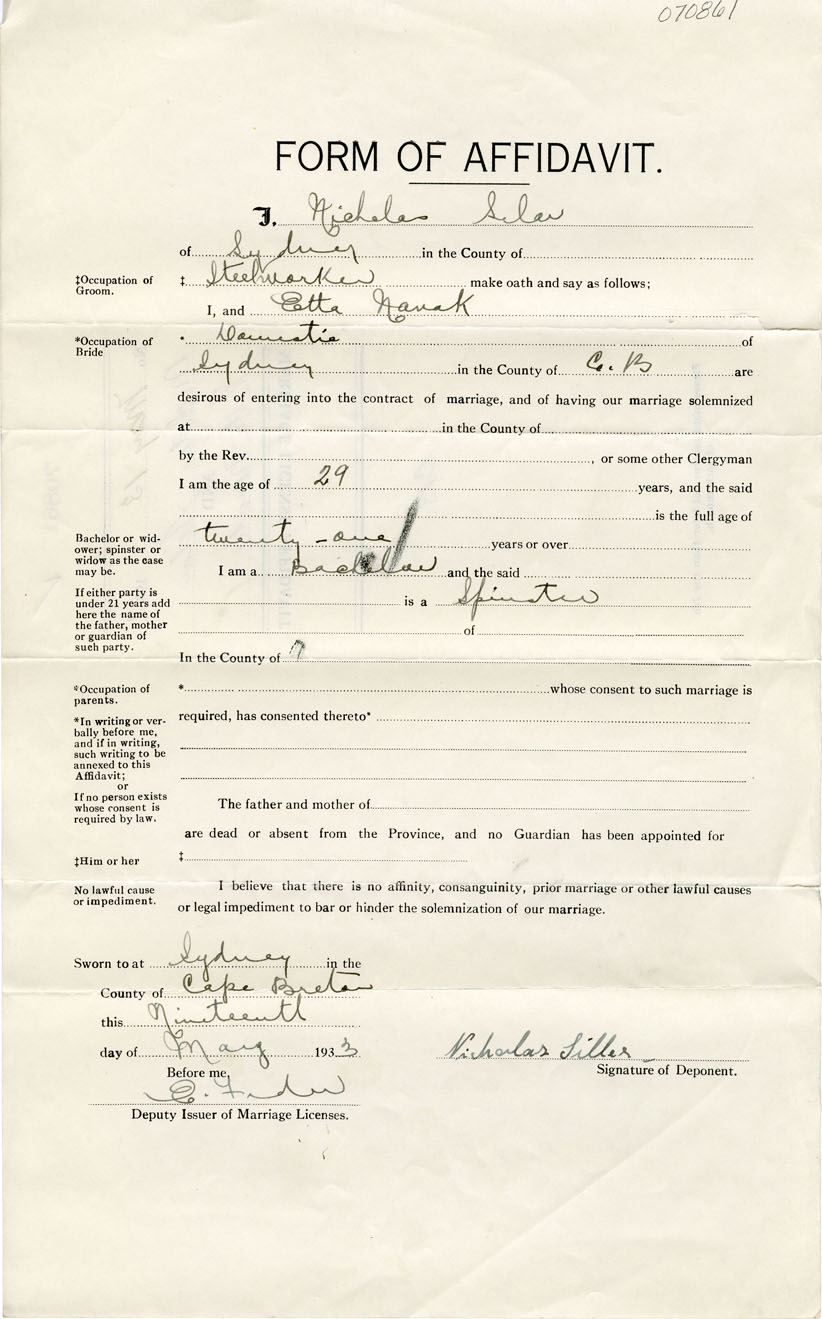 070861
FORM OF AFFIDAVIT.
I, Nicholas Silar
of Sydney in the County of
‡Occupation of Groom. ‡ Steelworker make oath and say as follows;
I, and Etta Novak
*Occupation of Bride * Domestic of
Sydney in the County of C. B are
desirous of entering into the contract of marriage, and of having our marriage solemnized
at in the County of
by the Rev. , or some other Clergyman
I am the age of 29 years, and the said
is the full age of
twenty-one years or over
Bachelor or widower; spinster or widow as the case may be.
I am a Bachelor and the said
is a Spinster
If either party is under 21 years add here the name of the father, mother or guardian of such party.
of
In the County of
*Occupation of parents. * whose consent to such marriage is
required, has consented thereto*
*In writing or verbally before me, and if in writing, such writing to be annexed to this Affidavit;
or
If no person exists whose consent is required by law.
The father and mother of
are dead or absent from the Province, and no Guardian has been appointed for
‡Him or her ‡
No lawful cause or impediment.
I believe that there is no affinity, consanguinity, prior marriage or other lawful causes
or legal impediment to bar or hinder the solemnization of our marriage.
Sworn to at Sydney in the
County of Cape Breton
this Nineteenth
day of May 1933
Nicholas Siller
Signature of Deponent.
Before me,
E.
Deputy Issuer of Marriage Licenses.